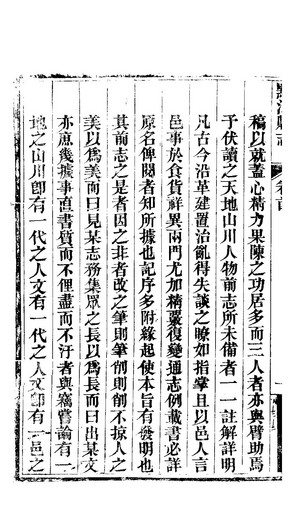 稿以就葢心精力果陳之功居多而三人者亦與臂助焉
予伏讀之天地山川人物前志所未備者一一註解詳明
凡古今沿革建置治亂得失談之瞭如指掌且以邑人言
邑事於食貨鮮異兩門尤加精覈復變通志例載書必詳
原名俾閱者知所據也記序多附緣起使本旨有發明也
其前志之是者因之非者改之筆則筆削則削不掠人之
美以爲美而曰見某志務集眾之長以爲長而曰出某文
亦庶幾據事直書質而不俚盡而不汙者與竊嘗論有一
地之山川卽有一代之人文有一代之人文卽有一邑之